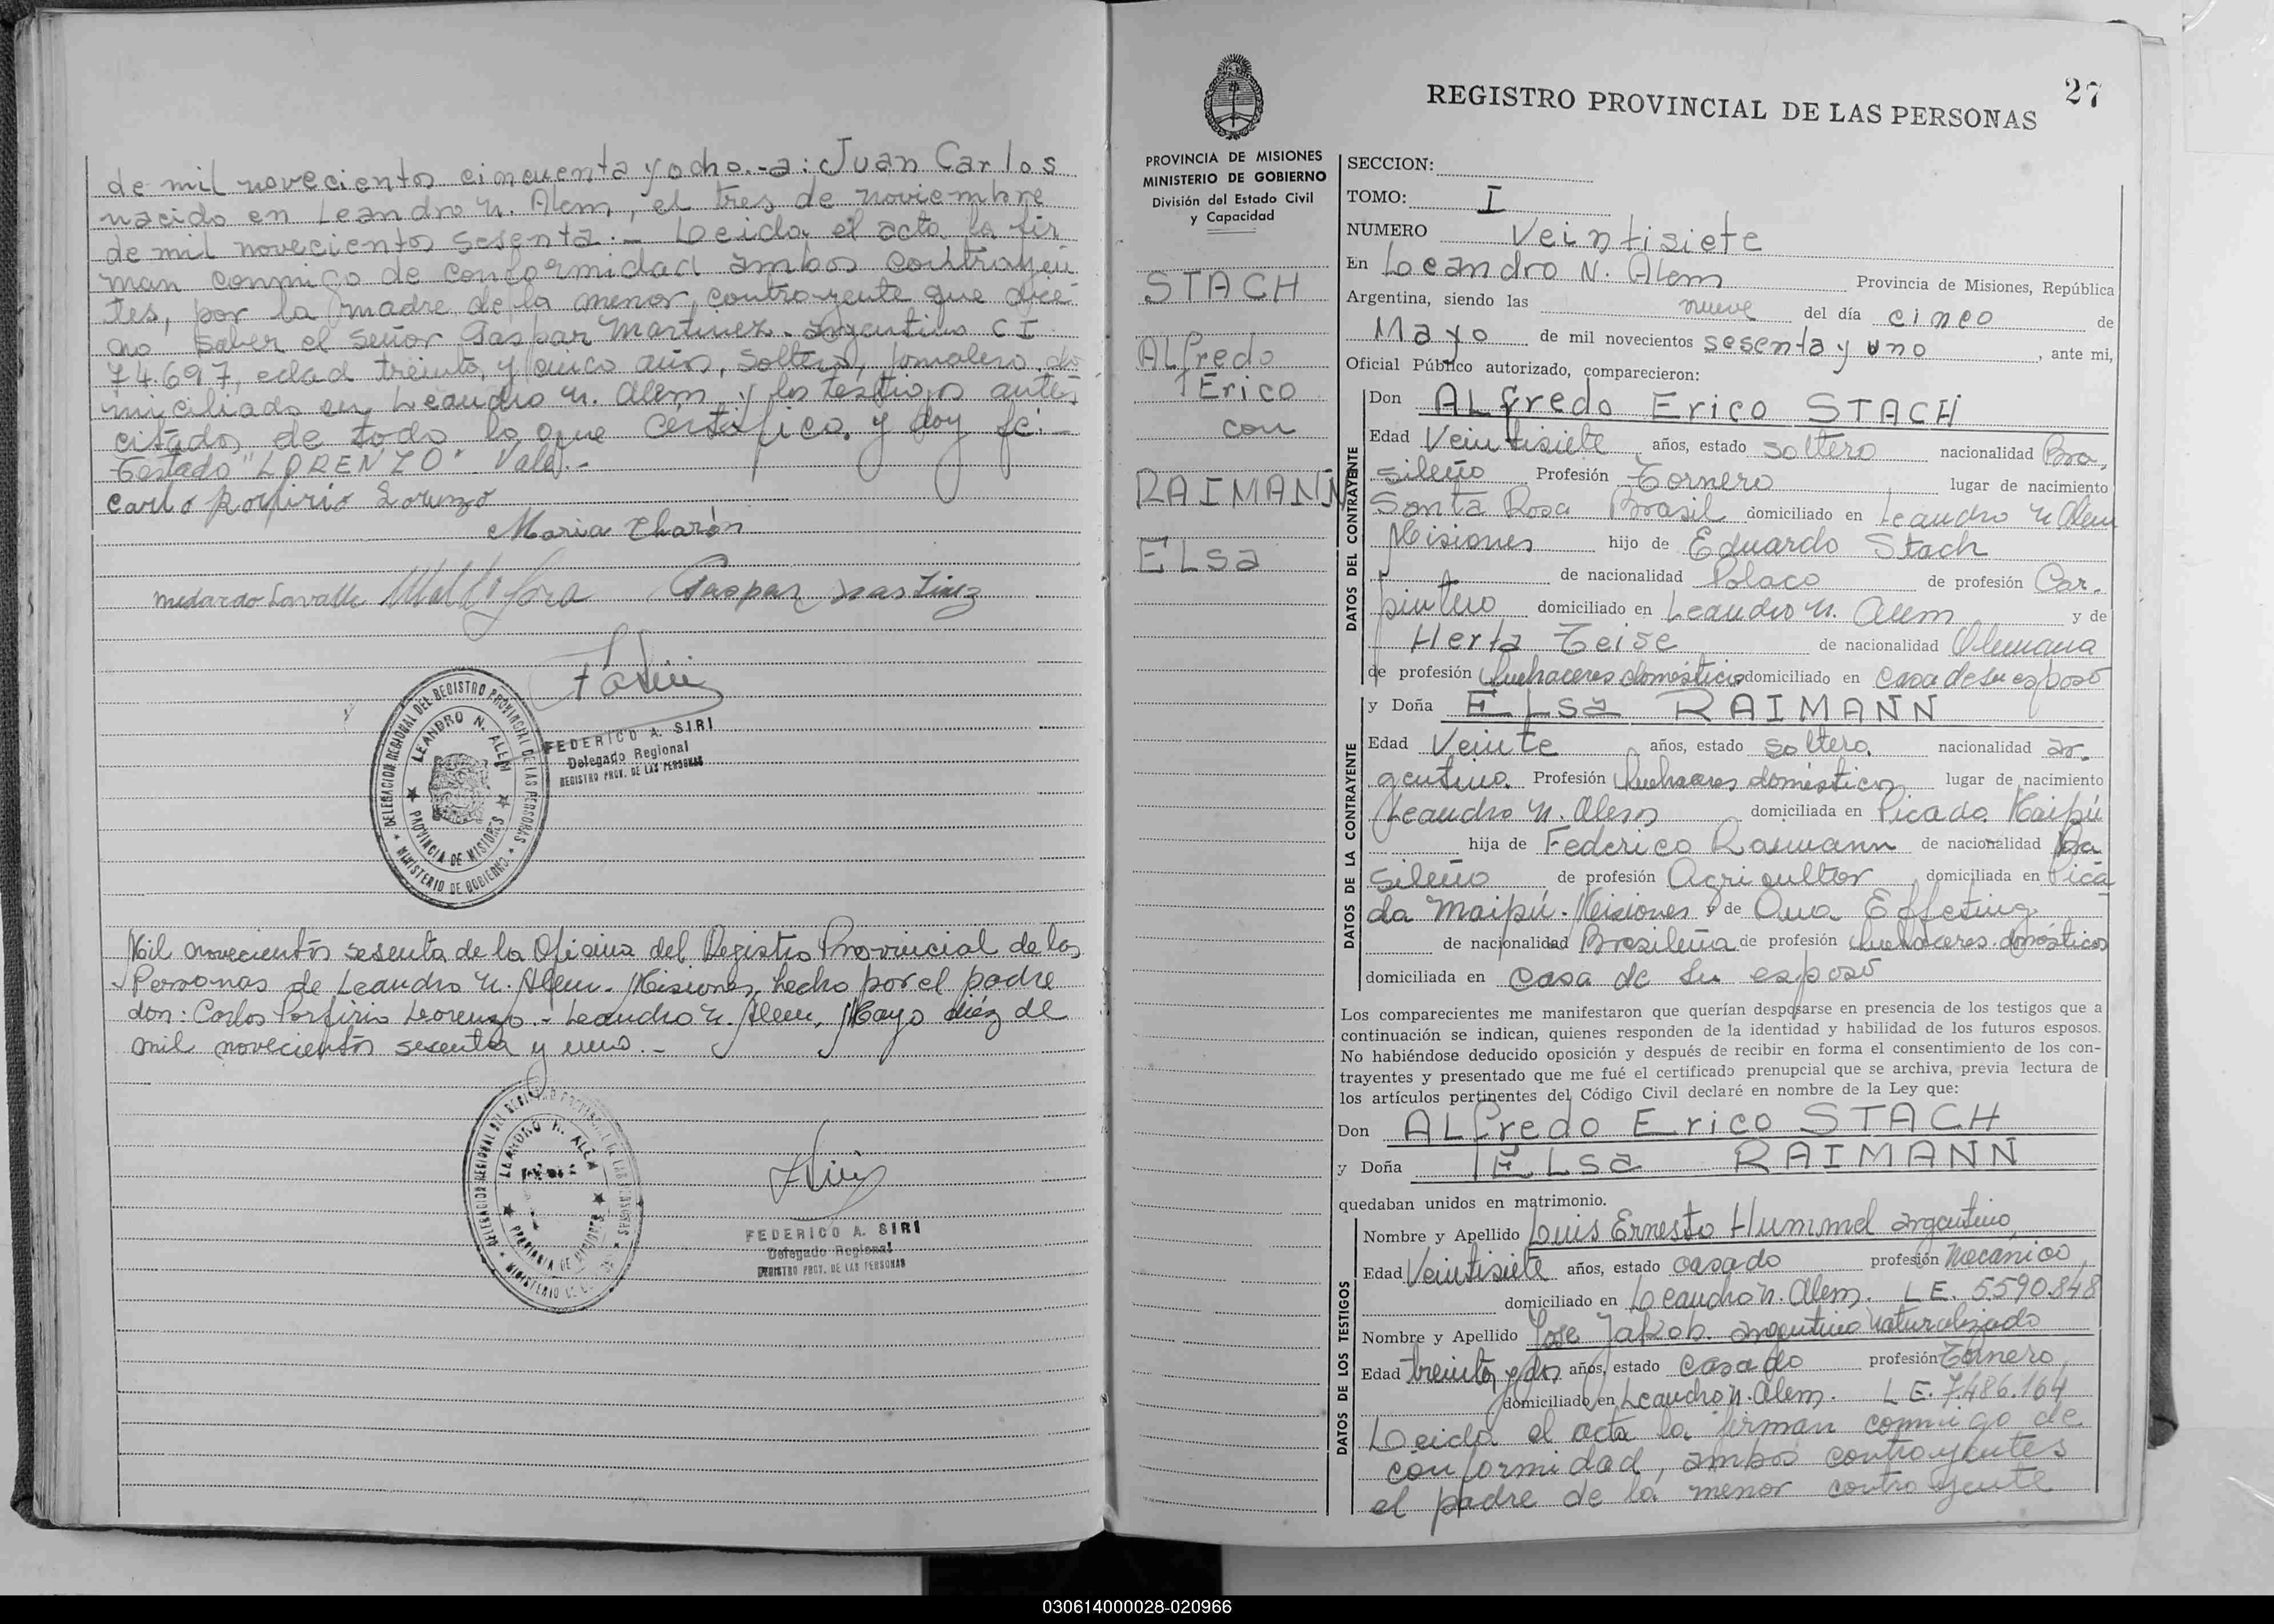 de mil novecientos cincuenta y ocho.-a: Juan Carlos
nacido en Leandro N. Alem, el tres de noviembre
de mil novecientos sesenta.- Leida el acta la fir
man conmigo de conformidad ambos contrayen
tes, por la madre de la menor contrayente que dice
no saber el señor Gaspar Martinez. argentino C I
74.697, edad treinta y cinco años, soltero, jornalero, do
miciliado en Leandro N. Alem y los testigos antes
citados, de todo lo que certifico y doy fé.-
Testado "LORENZO". Vale.-
Carlo Porfirio Lorenzo
Maria Charón
Medardo Lavalle Gaspar Martinez
DELEGACION REGIONAL DEL REGISTRO PROVINCIAL DE LAS PERSONAS
LEANDRO N. ALEM
PROVINCIA DE MISIONES
MINISTERIO DE GOBIERNO
FEDERICO A. SIRI
Delegado Regional
REGISTRO PROV. DE LAS PERSONAS
Mil novecientos sesenta de la Oficina del Registro Provincial de las
Personas de Leandro N. Alem. Misiones, hecho por el padre
don: Carlos Porfirio Lorenzo.- Leandro N. Alem, Mayo diéz de
mil novecientos sesenta y uno.-
DELEGACION REGIONAL DEL REGISTRO PROVINCIAL DE LAS PERSONAS
LEANDRO N. ALEM
PROVINCIA DE MISIONES
MINISTERIO DE
FEDERICO A. SIRI
Delegado Regional
REGISTRO PROV. DE LAS PERSONAS
27
REGISTRO PROVINCIAL DE LAS PERSONAS
PROVINCIA DE MISIONES
MINISTERIO DE GOBIERNO
División del Estado Civil
y Capacidad
STACH
ALfredo
Erico
con
RAIMANN
ELsa
SECCION:
TOMO: I
NUMERO Veintisiete
En Leandro N. Alem Provincia de Misiones, República
Argentina, siendo las nueve del día cinco de
Mayo de mil novecientos sesenta y uno, ante mi,
Oficial Público autorizado, comparecieron:
DATOS DEL CONTRAYENTE
Don ALfredo Erico STACH
Edad Veintisiete años, estado soltero nacionalidad Bra,
sileño Profesión Tornero lugar de nacimiento
Santa Rosa Brasil domiciliado en Leandro N Alem
Misiones hijo de Eduardo Stach
de nacionalidad Polaco de profesión Car.
pintero domiciliado en Leandro N. Alem y de
Herta Teise de nacionalidad Alemana
de profesión Quehaceres domésticos domiciliado en Casa de su esposo
DATOS DE LA CONTRAYENTE
y Doña ELsa RAIMANN
Edad Veinte años, estado soltera nacionalidad ar.
gentina. Profesión Quehaceres domésticos lugar de nacimiento
Leandro N. Alem domiciliada en Picada Maipú
hija de Federico Raimann de nacionalidad Bra
sileño de profesión Agricultor domiciliada en Pica
da Maipú. Misiones y de Ana Effeting
de nacionalidad Brasileña de profesión Quehaceres domésticos
domiciliada en Casa de su esposo
Los comparecientes me manifestaron que querían desposarse en presencia de los testigos que a
continuación se indican, quienes responden de la identidad y habilidad de los futuros esposos.
No habiéndose deducido oposición y después de recibir en forma el consentimiento de los con-
trayentes y presentado que me fué el certificado prenupcial que se archiva, previa lectura de
los artículos pertinentes del Código Civil declaré en nombre de la Ley que:
Don ALfredo Erico STACH
y Doña ELsa RAIMANN
quedaban unidos en matrimonio.
DATOS DE LOS TESTIGOS
Nombre y Apellido Luis Ernesto Hummel argentino
Edad Veintisiete años, estado casado profesión Mecánico
domiciliado en Leandro N. Alem. L E. 5.590.848
Nombre y Apellido Jose Jakob. argentino naturalizado
Edad treinta y dos años, estado casado profesión Tornero
domiciliado en Leandro N. Alem. L E. 7.486.164
Leida el acta la firman conmigo de
conformidad, ambos contrayentes
el padre de la menor contrayente
030614000028-020966